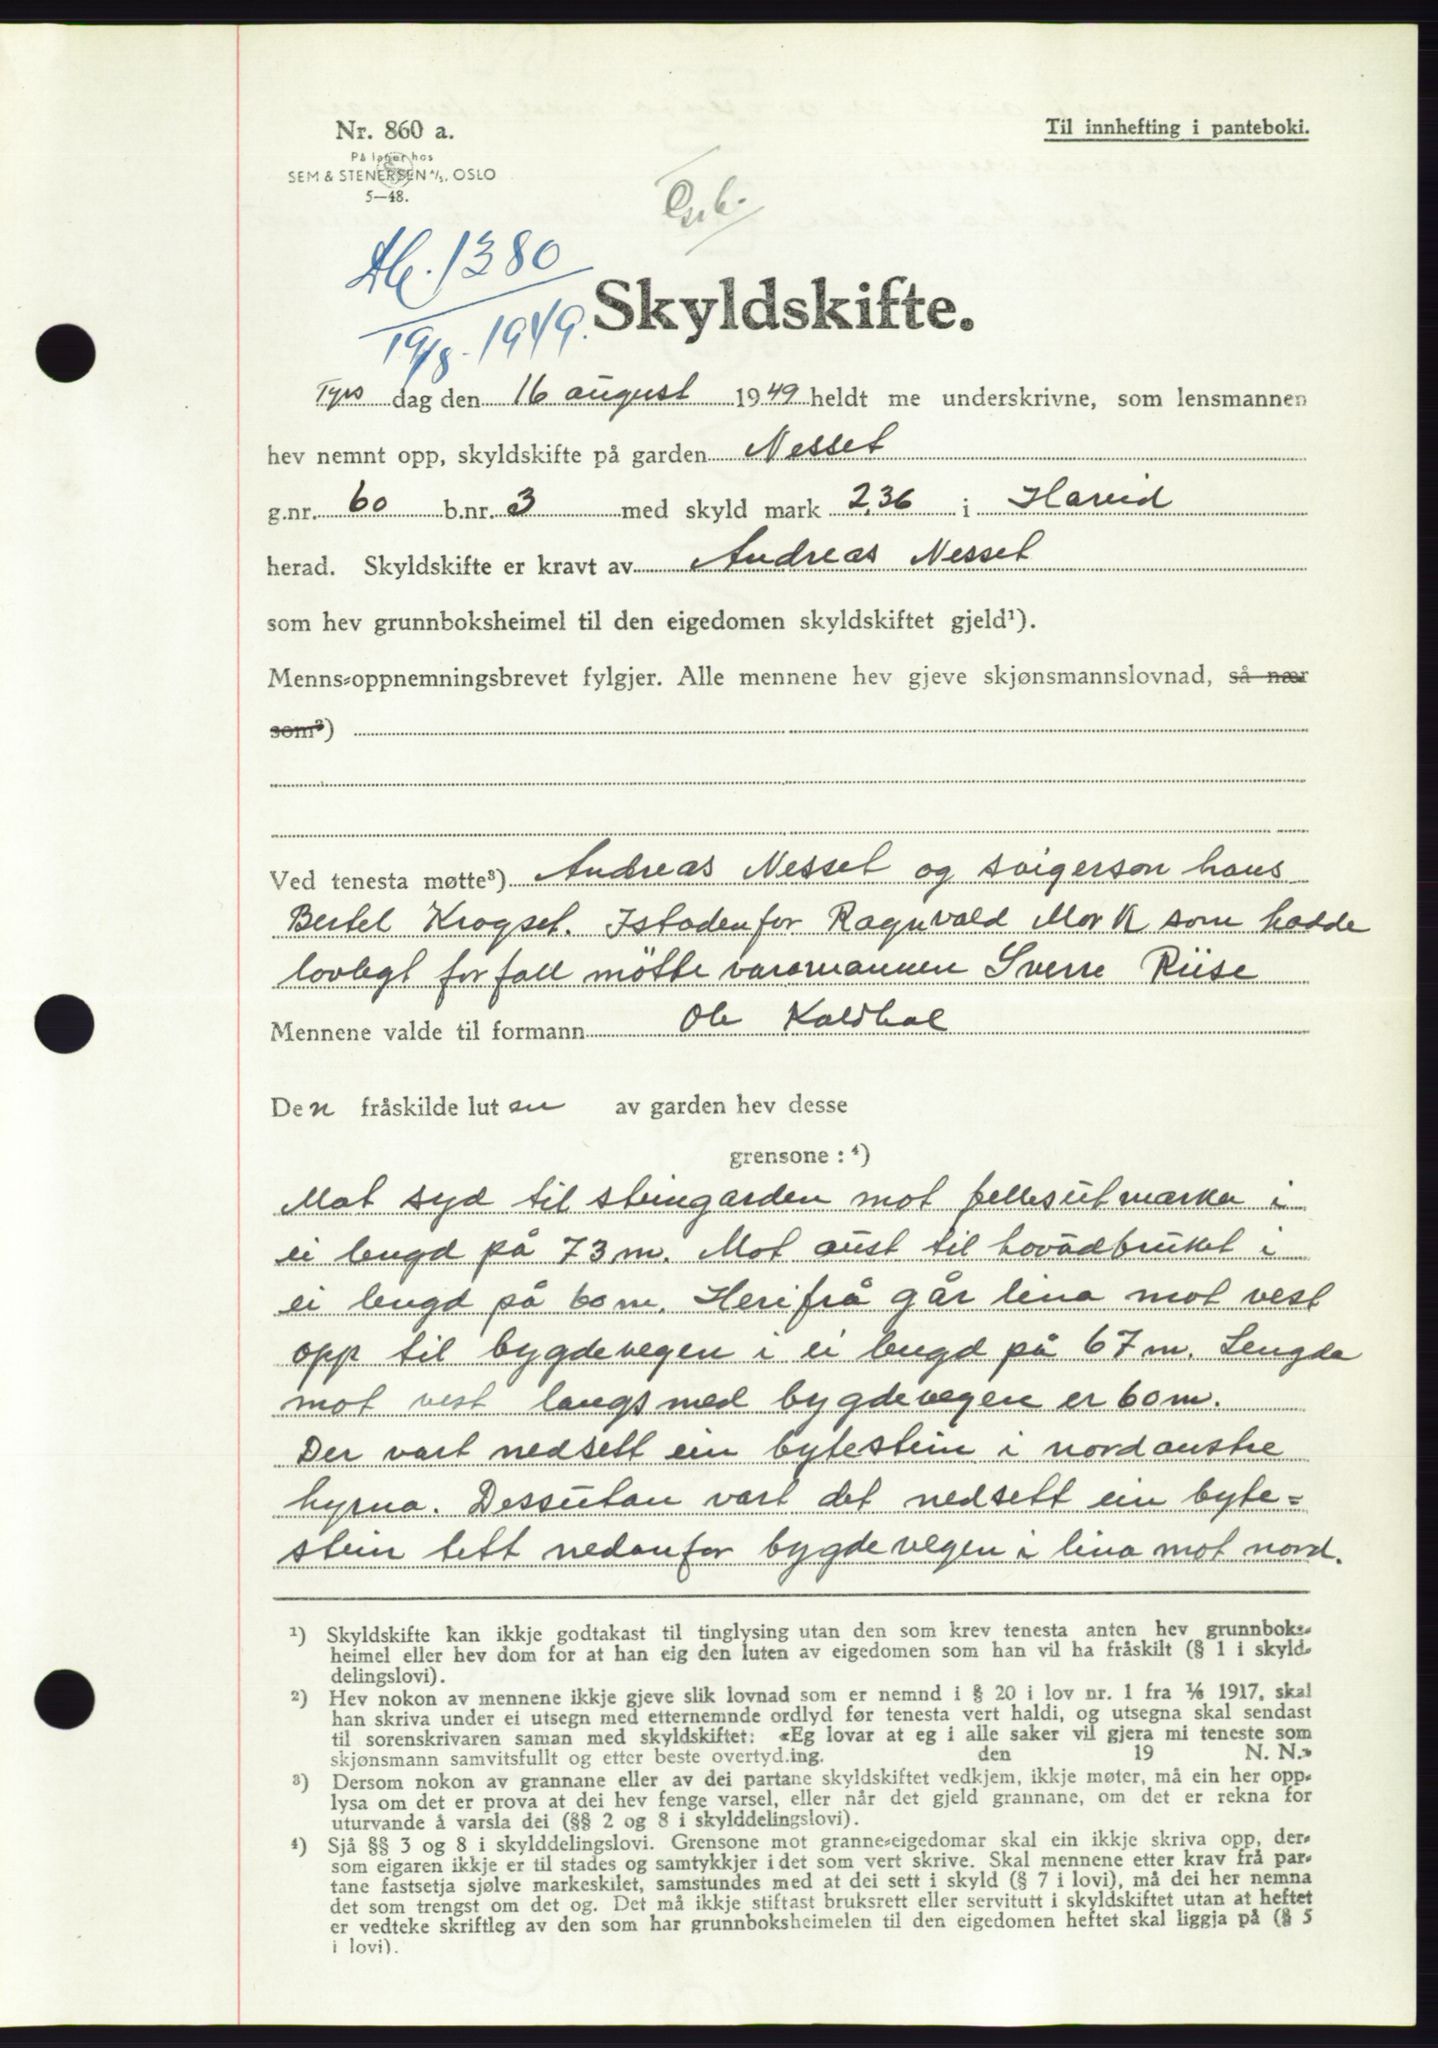 Nr. 860 a.
På lager hos
SEM & STENERSEN A/S, OSLO
5—48.
Til innhefting i panteboki.
1380
19/8-1949.
Skyldskifte.
Tyrs dag den 16 august 1949 heldt me underskrivne, som lensmannen
hev nemnt opp, skyldskifte på garden Nesset
g.nr. 60 b.nr. 3 med skyld mark 2,36 i Hareid
herad. Skyldskifte er kravt av Andreas Nesset
som hev grunnboksheimel til den eigedomen skyldskiftet gjeld¹).
Menns-oppnemningsbrevet fylgjer. Alle mennene hev gjeve skjønsmannslovnad, så nær
som²)
Ved tenesta møtte³) Andreas Nesset og svigerson hans
Bertel Krogset. Istadenfor Ragnvald Mork som hadde
lovlegt forfall møtte varamannen Sverre Riise
Mennene valde til formann Ole Kaldhol
Den fråskilde luten av garden hev desse
grensone: ⁴)
Mot syd til steingarden mot fellesutmarka i
ei lengd på 73 m. Mot aust til hovudbruket i
ei lengd på 60 m. Herifrå går lina mot vest
opp til bygdevegen i ei lengd på 67 m. Lengda
mot vest langs med bygdevegen er 60 m.
Der vart nedsett ein bytestein i nordaustre
hyrna. Dessutan vart det nedsett ein byte=
stein tett nedanfor bygdevegen i lina mot nord.
¹) Skyldskifte kan ikkje godtakast til tinglysing utan den som krev tenesta anten hev grunnboks-
heimel eller hev dom for at han eig den luten av eigedomen som han vil ha fråskilt (§ 1 i skyld-
delingslovi).
²) Hev nokon av mennene ikkje gjeve slik lovnad som er nemnd i § 20 i lov nr. 1 fra 1/6 1917, skal
han skriva under ei utsegn med etternemnde ordlyd før tenesta vert haldi, og utsegna skal sendast
til sorenskrivaren saman med skyldskiftet: «Eg lovar at eg i alle saker vil gjera mi teneste som
skjønsmann samvitsfullt og etter beste overtyd.ing. den 19 N. N.»
³) Dersom nokon av grannane eller av dei partane skyldskiftet vedkjem, ikkje møter, må ein her opp-
lysa om det er prova at dei hev fenge varsel, eller når det gjeld grannane, om det er rekna for
uturvande å varsla dei (§§ 2 og 8 i skylddelingslovi).
⁴) Sjå §§ 3 og 8 i skylddelingslovi. Grensone mot granne-eigedomar skal ein ikkje skriva opp, der-
som eigaren ikkje er til stades og samtykkjer i det som vert skrive. Skal mennene etter krav frå par-
tane fastsetja sjølve markeskilet, samstundes med at dei sett i skyld (§ 7 i lovi), må dei her nemna
det som trengst om det og. Det må ikkje stiftast bruksrett eller servitutt i skyldskiftet utan at heftet
er vedteke skriftleg av den som har grunnboksheimelen til den eigedomen heftet skal liggja på (§ 5
i lovi).